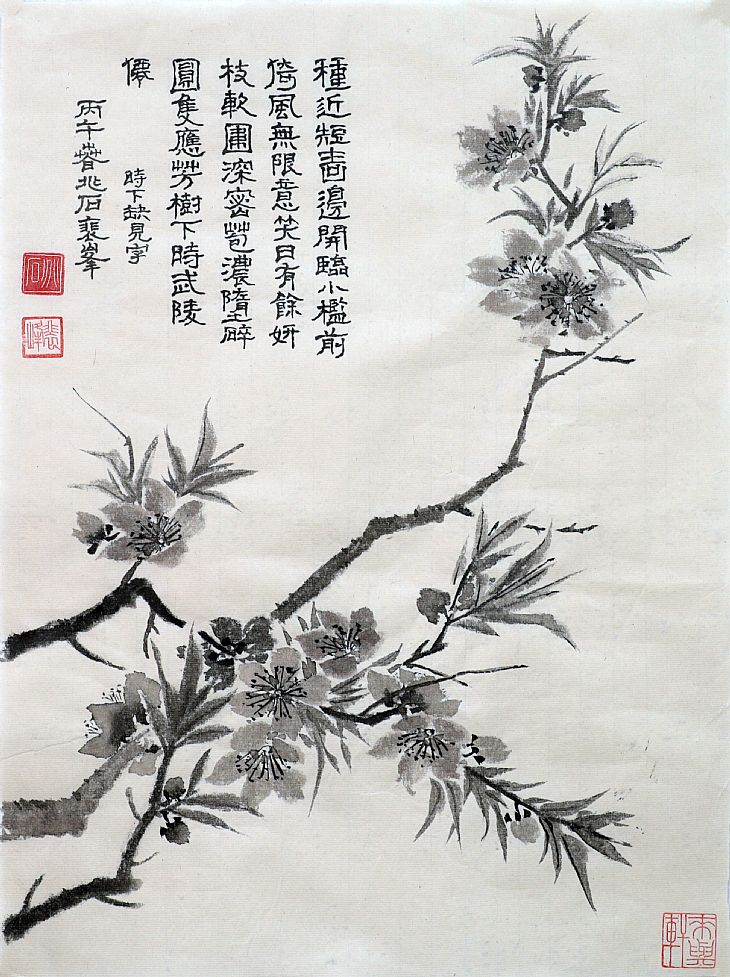 種近短牆邊開臨小檻前
倚風無限意笑日有餘妍
枝軟圃深密苞濃墮碎
圓隻應芳樹下時武陵
僊
時下缺見字
丙午暮兆石裴峯
兆石
裴峰